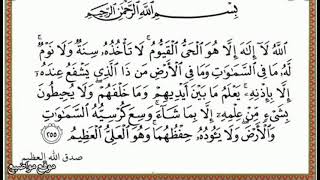 بِسْمِ اللَّهِ الرَّحْمَٰنِ الرَّحِيمِ
اللَّهُ لَا إِلَٰهَ إِلَّا هُوَ الْحَيُّ الْقَيُّومُ ۚ لَا تَأْخُذُهُ سِنَةٌ وَلَا نَوْمٌ ۚ
لَّهُ مَا فِي السَّمَاوَاتِ وَمَا فِي الْأَرْضِ ۗ مَن ذَا الَّذِي يَشْفَعُ عِندَهُ
إِلَّا بِإِذْنِهِ ۚ يَعْلَمُ مَا بَيْنَ أَيْدِيهِمْ وَمَا خَلْفَهُمْ ۖ وَلَا يُحِيطُونَ
بِشَيْءٍ مِّنْ عِلْمِهِ إِلَّا بِمَا شَاءَ ۚ وَسِعَ كُرْسِيُّهُ السَّمَاوَاتِ
وَالْأَرْضَ ۖ وَلَا يَئُودُهُ حِفْظُهُمَا ۚ وَهُوَ الْعَلِيُّ الْعَظِيمُ ٢٥٥
صدق الله العظيم
موقع مواضيع